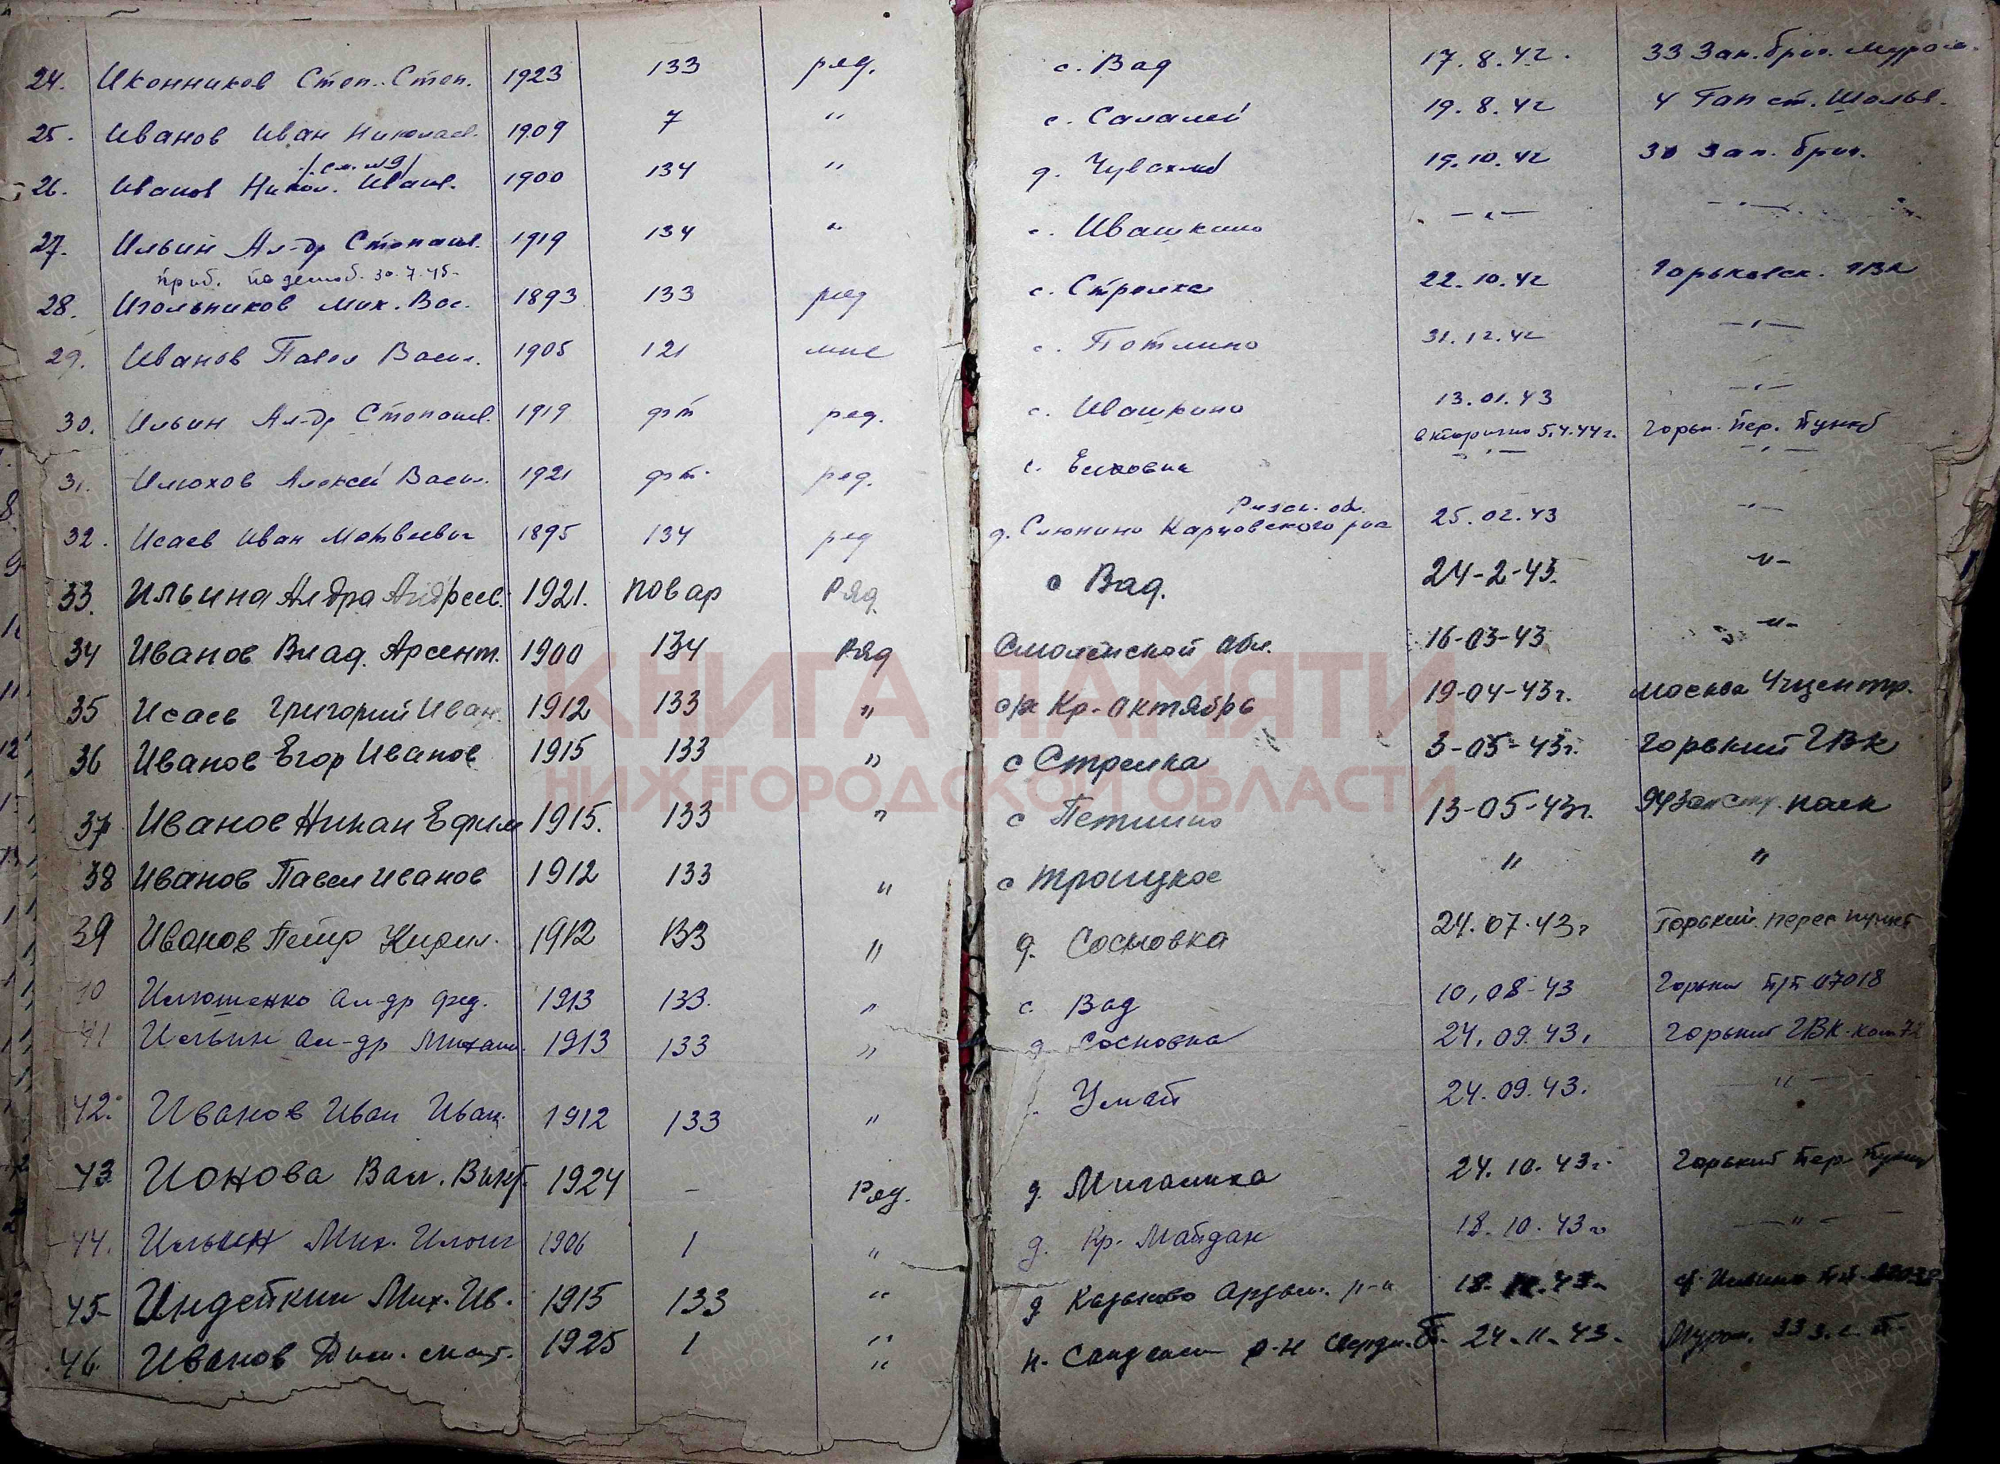 24. Иконников Степ. Степ. 1923 133 ряд. с. Вад 17.8.42. 33 Зап. бриг. Муром.
25. Иванов Иван Николаев. 1909 7 " с. Салалей 19.8.42 4 Гап ст.
/см. №9/
26. Иванов Никол. Иван. 1900 134 " д. 19.10.42 30 Зап. бриг.
27. Ильин Ал-др Степанов. 1919 134 " с. Ивашкино — " — — " —
приб. по демоб. 30.7.45
28. Игольников Мих. Вас. 1893 133 ряд с. Стрелка 22.10.42 Горьковск. ГВК
29. Иванов Павел Васил. 1905 121 с. Петлино 31.12.42 — " —
30. Ильин Ал-др Степанов. 1919 ряд. с. Ивашкино 13.01.43 — " —
вторично 5.4.44 г. Горьк. Пер. Пункт
31. Илюхов Алексей Васил. 1921 ряд. с. Елховка — " — — " —
Рязан. об.
32. Исаев Иван Матвеевич 1895 134 ряд д. Слюнино 25.02.43 — " —
33. Ильина Ал-дра Андреев. 1921. повар Ряд. с Вад. 24-2-43. -"-
34 Иванов Влад. Арсент. 1900 134 Ряд Смоленской обл. 16-03-43 -"-
35 Исаев Григорий Иван. 1912 133 " с/х Кр-Октябрь 19-04-43г. Москва
36 Иванов Егор Иванов 1915 133 " с Стрелка 3-05-43г. Горький ГВК
КНИГА ПАМЯТИ
НИЖЕГОРОДСКОЙ ОБЛАСТИ
37 Иванов Никан Ефим 1915. 133 " с Петлино 13-05-43г.
38 Иванов Павел Иванов 1912 133 " с Троицкое " "
39 Иванов Петр Кирил. 1912 133 " д. Сосновка 24.07.43г Горький. перес пункт
40 Илюшенко Ал-др Фед. 1913 133. " с. Вад 10,08-43 Горьки П/П 07018
41 Ильин Ал-др Михаил. 1913 133 " д. Сосновка 24.09.43. Горький ГВК
42. Иванов Иван Иван. 1912 133 " Умай 24.09.43. — " —
43. Ионова Вал. Викт. 1924 — Ряд. д. Мигалиха 24.10.43г. Горький Пер. Пункт
44. Ильин Мих. 1906 1 " д. Кр. Майдан 18.10.43г — " —
45- Индейкин Мих. Ив. 1915 133 " д
46. Иванов Дим. 1925 1 " 24-11-43.
"